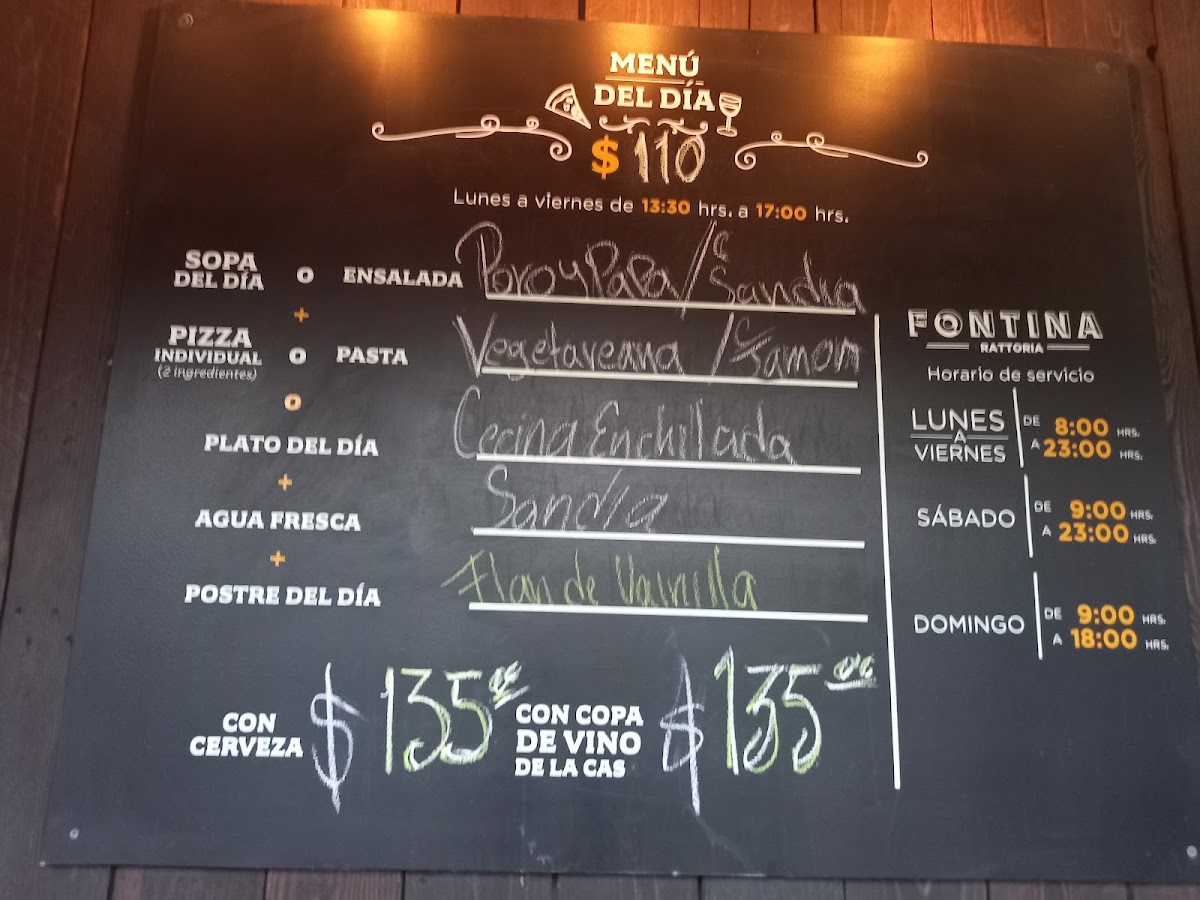 MENÚ
DEL DÍA
$ 110
Lunes a viernes de 13:30 hrs. a 17:00 hrs.
SOPA
DEL DÍA
O ENSALADA Poro y Papa / C Sandia
+
PIZZA
INDIVIDUAL
(2 ingredientes)
O PASTA Vegetareana / C Jamon
O
PLATO DEL DÍA Cecina Enchillada
+
AGUA FRESCA Sandia
+
POSTRE DEL DÍA Flan de Vainilla
CON
CERVEZA $ 135.00
CON COPA
DE VINO
DE LA CAS $ 135.00
FONTINA
RATTORIA
Horario de servicio
LUNES
A
VIERNES
DE 8:00 HRS.
A 23:00 HRS.
SÁBADO
DE 9:00 HRS.
A 23:00 HRS.
DOMINGO
DE 9:00 HRS.
A 18:00 HRS.